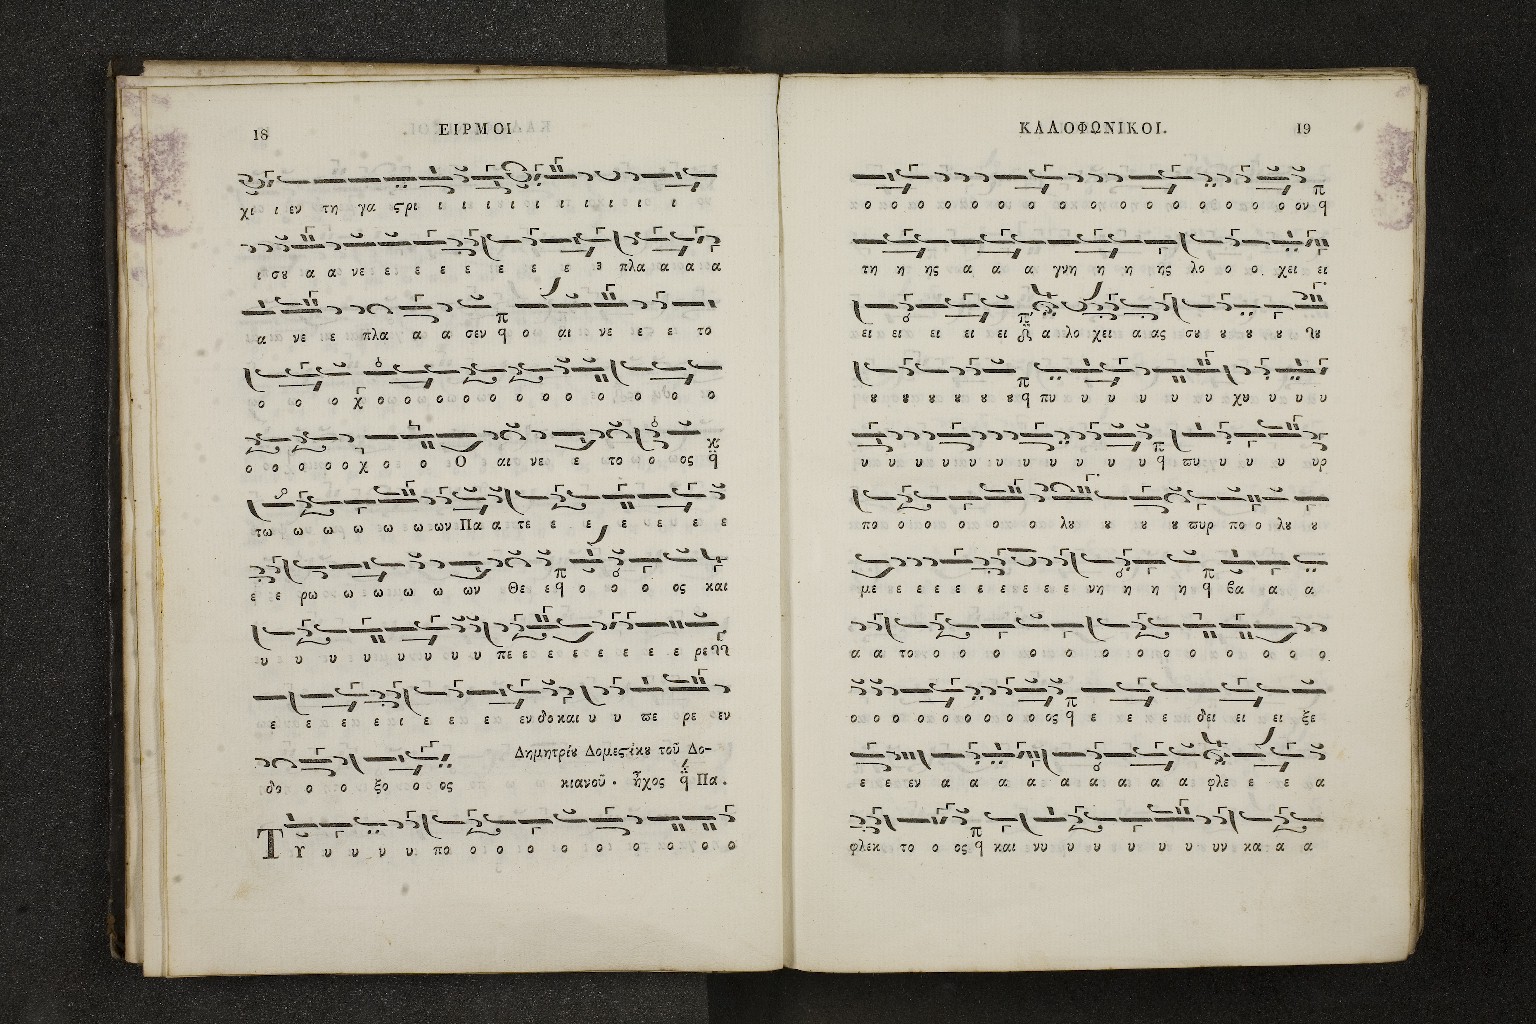 18
ΕΙΡΜΟΙ
χι ι εν τη γα ϛρι ι ι ι ι ι ι ι ι ι ι
ι σȣ α α νε ε ε ε ε ε ε ε ε πλα α α α
α νε ε πλα α α σεν ο αι νε ε ε το
ο ο ο χ ο ο ο ο ο ο ο ο ο ο ο ο ο
ο ο ο ο ο χ ο ο Ο αι νε ε το ο ο ος
τω ω ω ω ω ω ων Πα α τε ε ε ε ε ε ε
ε ε ρω ω ω ω ω ων Θε ε ο ο ο ο ος και
υ υ υ υ υ υ υ υ πε ε ε ε ε ε ε ε ρε
ε ε ε ε ε ε ε ε εν δο και υ υ πε ρε εν
δο ο ο ξο ο ος
Δημητρίȣ Δομεϛίκȣ τοῦ Δο-
κιανοῦ. ἦχος Πα.
Τ Υ υ υ υ πο ο ο ο ο ο ο ο ο ο
ΚΑΛΟΦΩΝΙΚΟΙ.
19
ο ο ο ο ο ο ο ο ο ο ο ο ο ο ο ο ον
τη η ης α α α γνη η η ης λο ο ο χει ει
ει ει ει ει ει α λο χει α ας σȣ ȣ ȣ ȣ
ȣ ȣ ȣ ȣ ȣ ȣ πυ υ υ υ υ υ χυ υ υ υ
υ υ υ υ υ υ υ υ υ υ υ υ πυ υ υ υ υρ
πο ο ο ο ο ο λȣ ȣ ȣ ȣ πυρ πο ο λȣ ȣ
με ε ε ε ε ε ε ε ε ε νη η η η η βα α α
α α το ο ο ο ο ο ο ο ο ο ο ο ο ο
ο ο ο ο ο ο ο ο ο ο ος ε ε ε ε δει ει ει ξε
ε ε εν α α α α α α α α α φλε ε ε α
φλεκ το ο ος και νυ υ υ υ υ υ υν κα α α